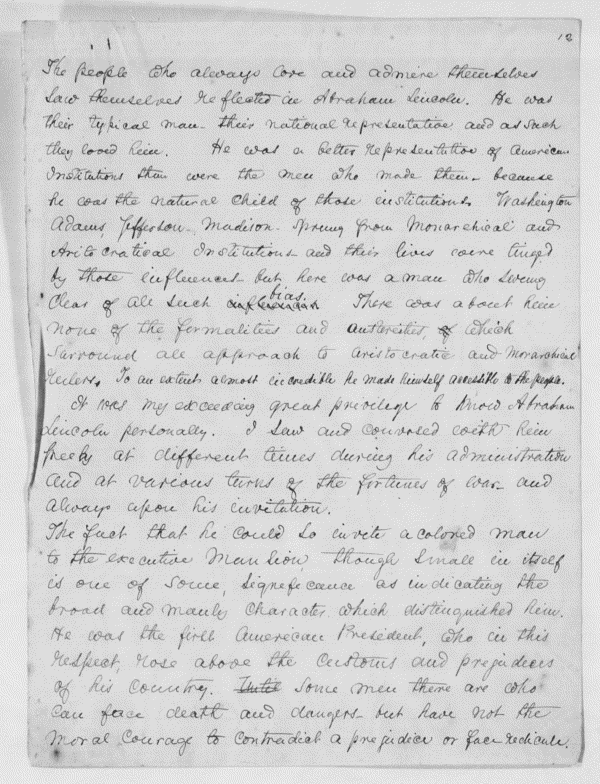 12
The people who always love and admire themselves
saw themselves reflected in Abraham Lincoln. He was
their typical man - their national representative and as such
they loved him. He was a better representative of American
Institutions than were the men who made them - because
he was the natural child of those institutions. Washington
Adams, Jefferson - Madison - sprung from Monarchical and
Aristocratical Institutions - and their lives were tinged
by those influences - but here was a man who swung
clear of all such influences bias. There was about him
none of the formalities and austerities, of which
surround all approach to aristocratic and monarchical
rulers. To an extent almost incredible he made himself accessible to the people.
It was my exceeding great privilege to know Abraham
Lincoln personally. I saw and conversed with him
freely at different times during his administration
and at various turns of the fortunes of war - and
always upon his invitation.
The fact that he could so invite a colored man
to the executive Mansion, though small in itself
is one of some, significance as indicating the
broad and manly character, which distinguished him.
He was the first American President, who in this
respect, rose above the customs and prejudices
of his country. Until some men there are who
can face death and dangers - but have not the
moral courage to contradict a prejudice or face redicule.